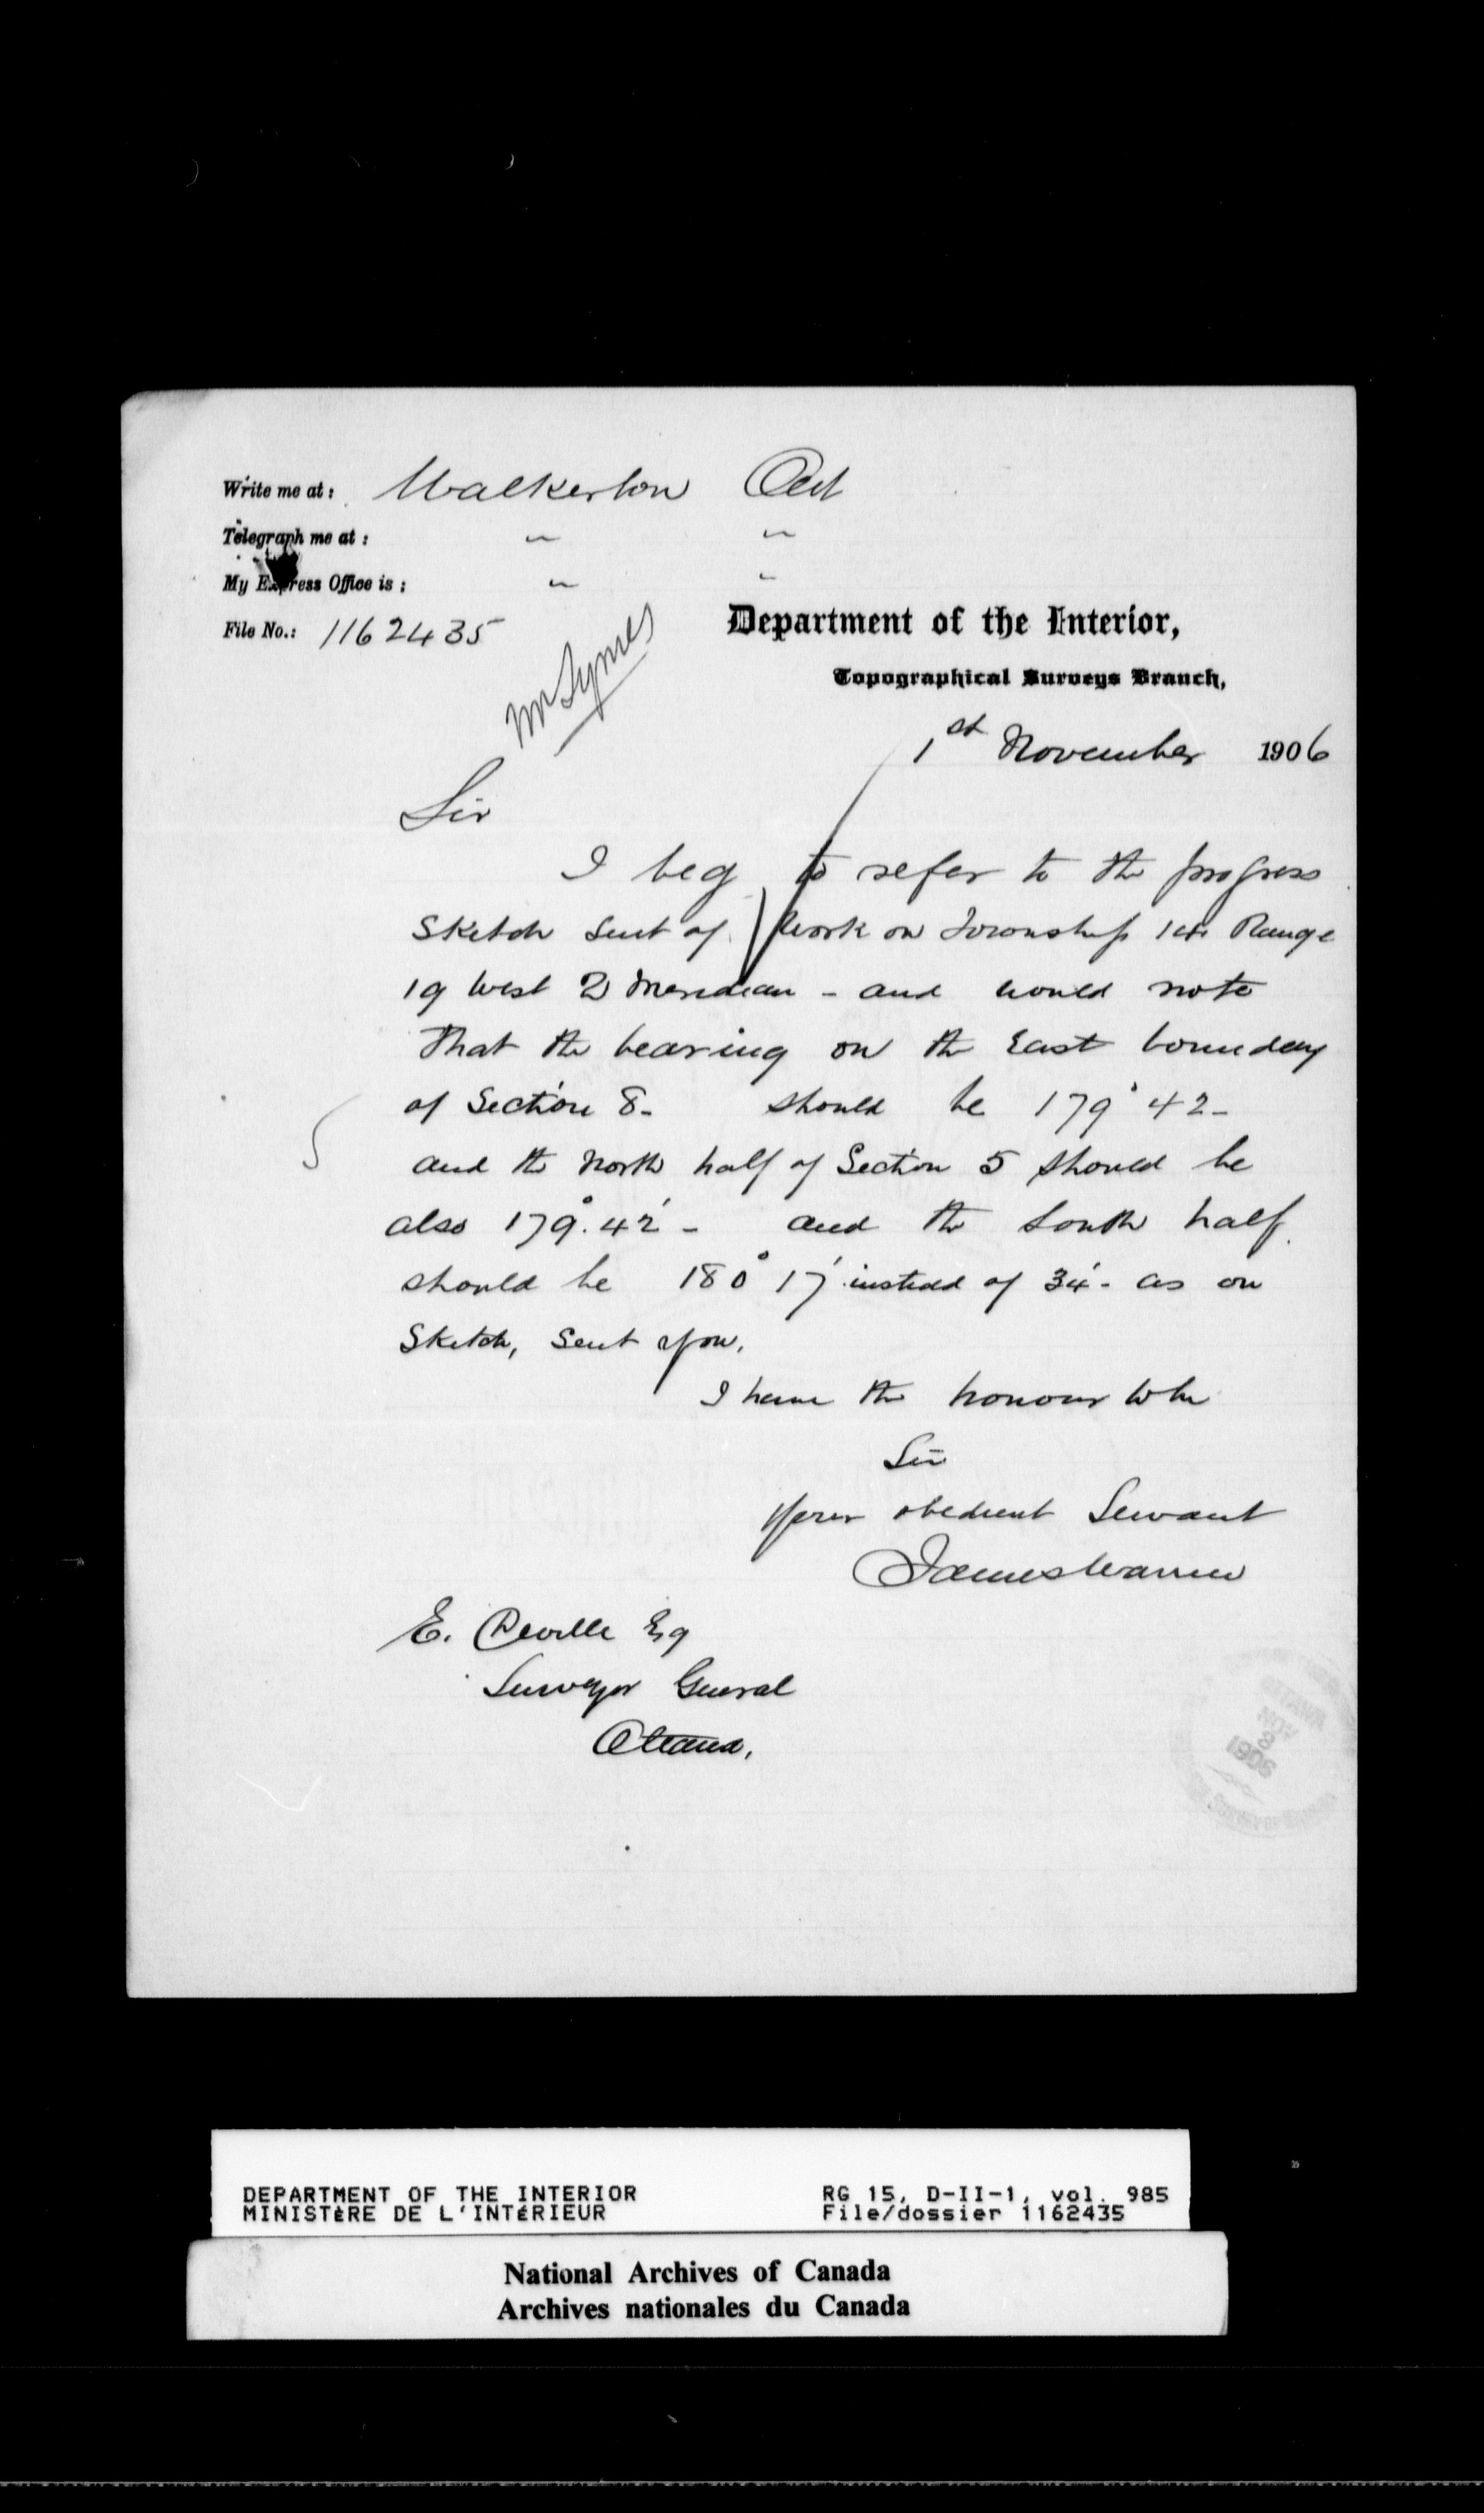 Write me at: Walkerton Ont
Telegraph me at: " "
My Express Office is: " "
File No.: 1162435
Mr Symes
Department of the Interior,
Topographical Surveys Branch,
1st November 1906
Sir
I beg to refer to the progress
Sketch sent of work on Township 14 Range
19 West 2 Meridian - and would note
that the bearing on the East boundary
of Section 8- should be 179° 42-
and the North half of Section 5 should be
also 179°.42' - and the South half
should be 180° 17' instead of 34' - as on
Sketch, sent you.
I have the honour to be
Sir
Your obedient Servant
James Warren
E. Deville Esq
Surveyor General
Ottawa,
1906
DEPARTMENT OF THE INTERIOR
MINISTÈRE DE L'INTÉRIEUR
RG 15, D-II-1, vol. 985
File/dossier 1162435
National Archives of Canada
Archives nationales du Canada